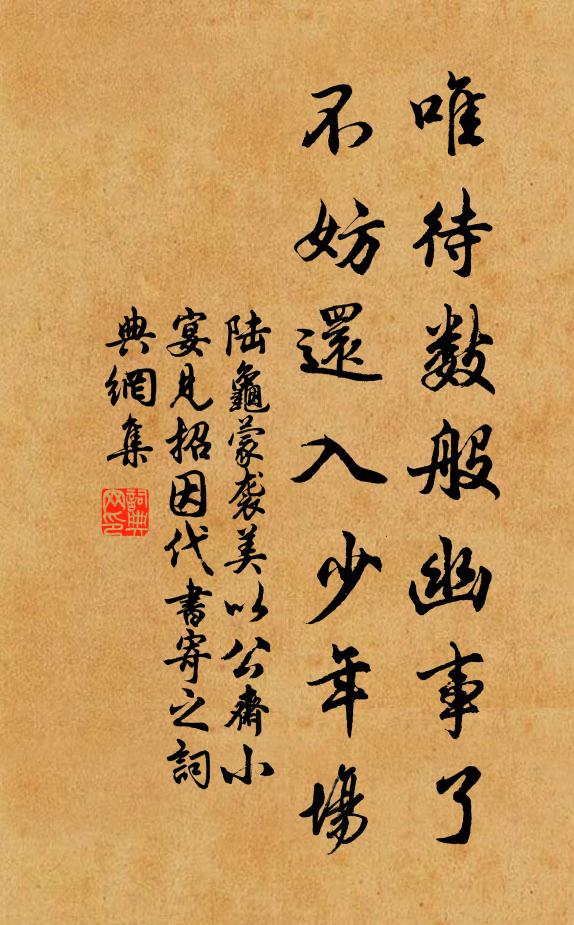 唯待数般幽事了
不妨還入少年場
陆龜蒙袭美以公齋小
宴見招因代書寄之詞
典網集
詞典
网印